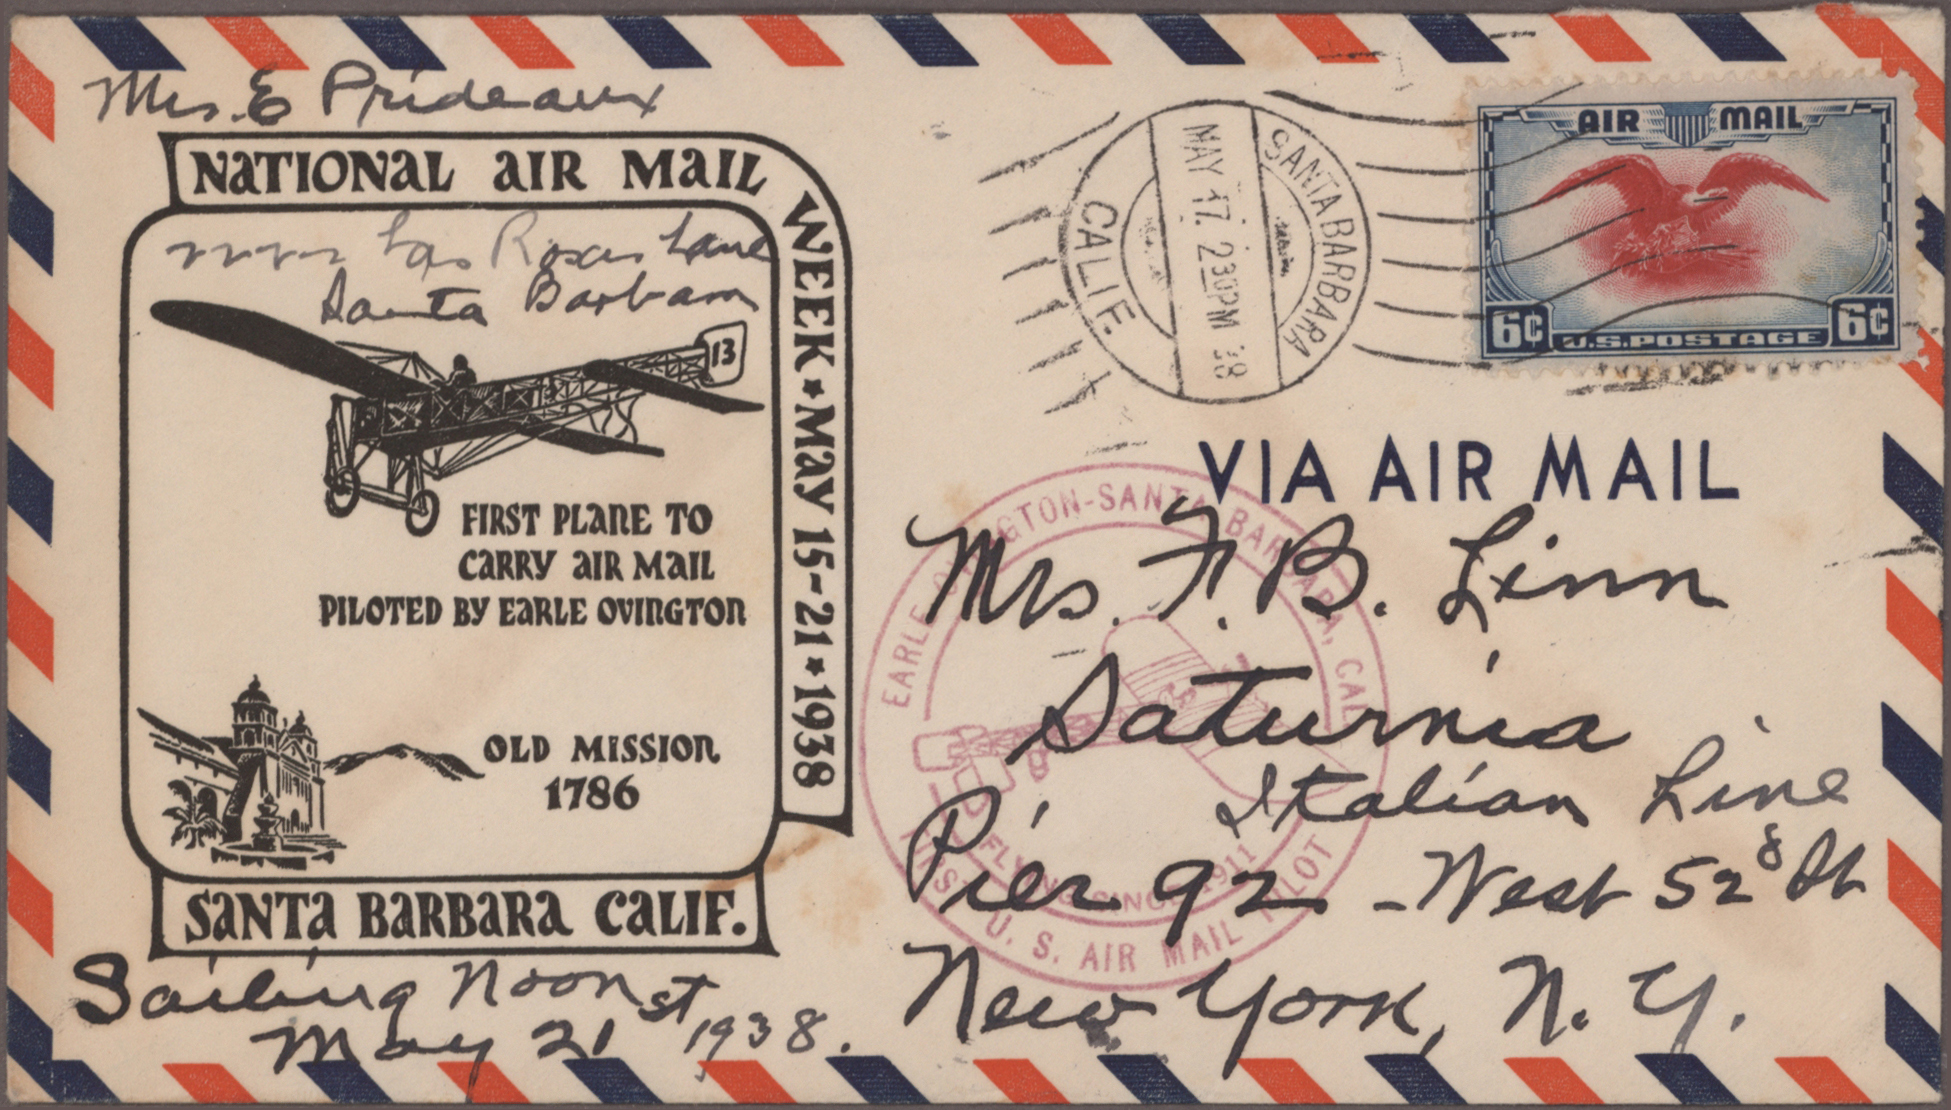 Mrs. E Prideaux
NATIONAL AIR MAIL WEEK ★ MAY 15-21 ★ 1938
Las Rosas Lane
Santa Barbara
13
FIRST PLANE TO
CARRY AIR MAIL
PILOTED BY EARLE OVINGTON
OLD MISSION
1786
SANTA BARBARA CALIF.
Sailing Noon
May 21st 1938.
SANTA BARBARA
MAY 17. 230PM '38
CALIF.
AIR MAIL
6¢ U.S. POSTAGE 6¢
VIA AIR MAIL
EARLE OVINGTON-SANTA BARBARA, CAL
FLYING SINCE 1911
FIRST U. S. AIR MAIL PILOT
Mrs. F. B. Linn
Saturnia
Italian Line
Pier 92 - West 52 St
New York, N. Y.